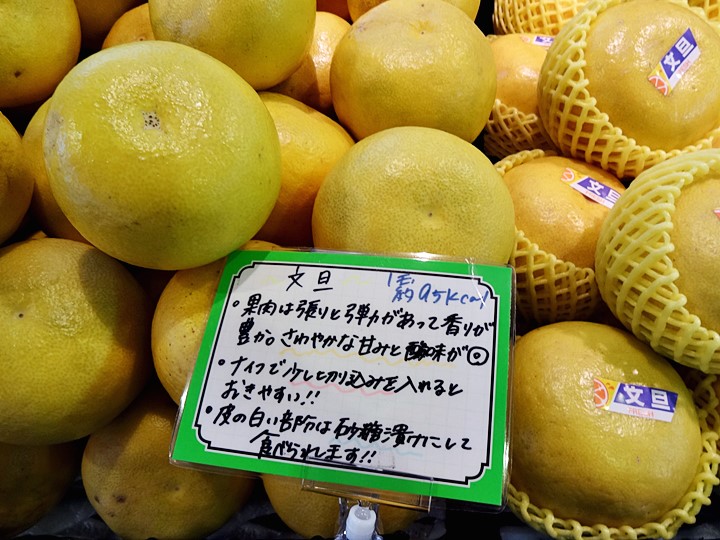 文旦 1玉約95kcal
・果肉は張りと弾力があって香りが
豊か。さわやかな甘みと酸味が◎
・ナイフで少し切り込みを入れると
おきやすい!!
・皮の白い部防は砂糖漬けにして
食べられます!!
文旦
文旦
文旦